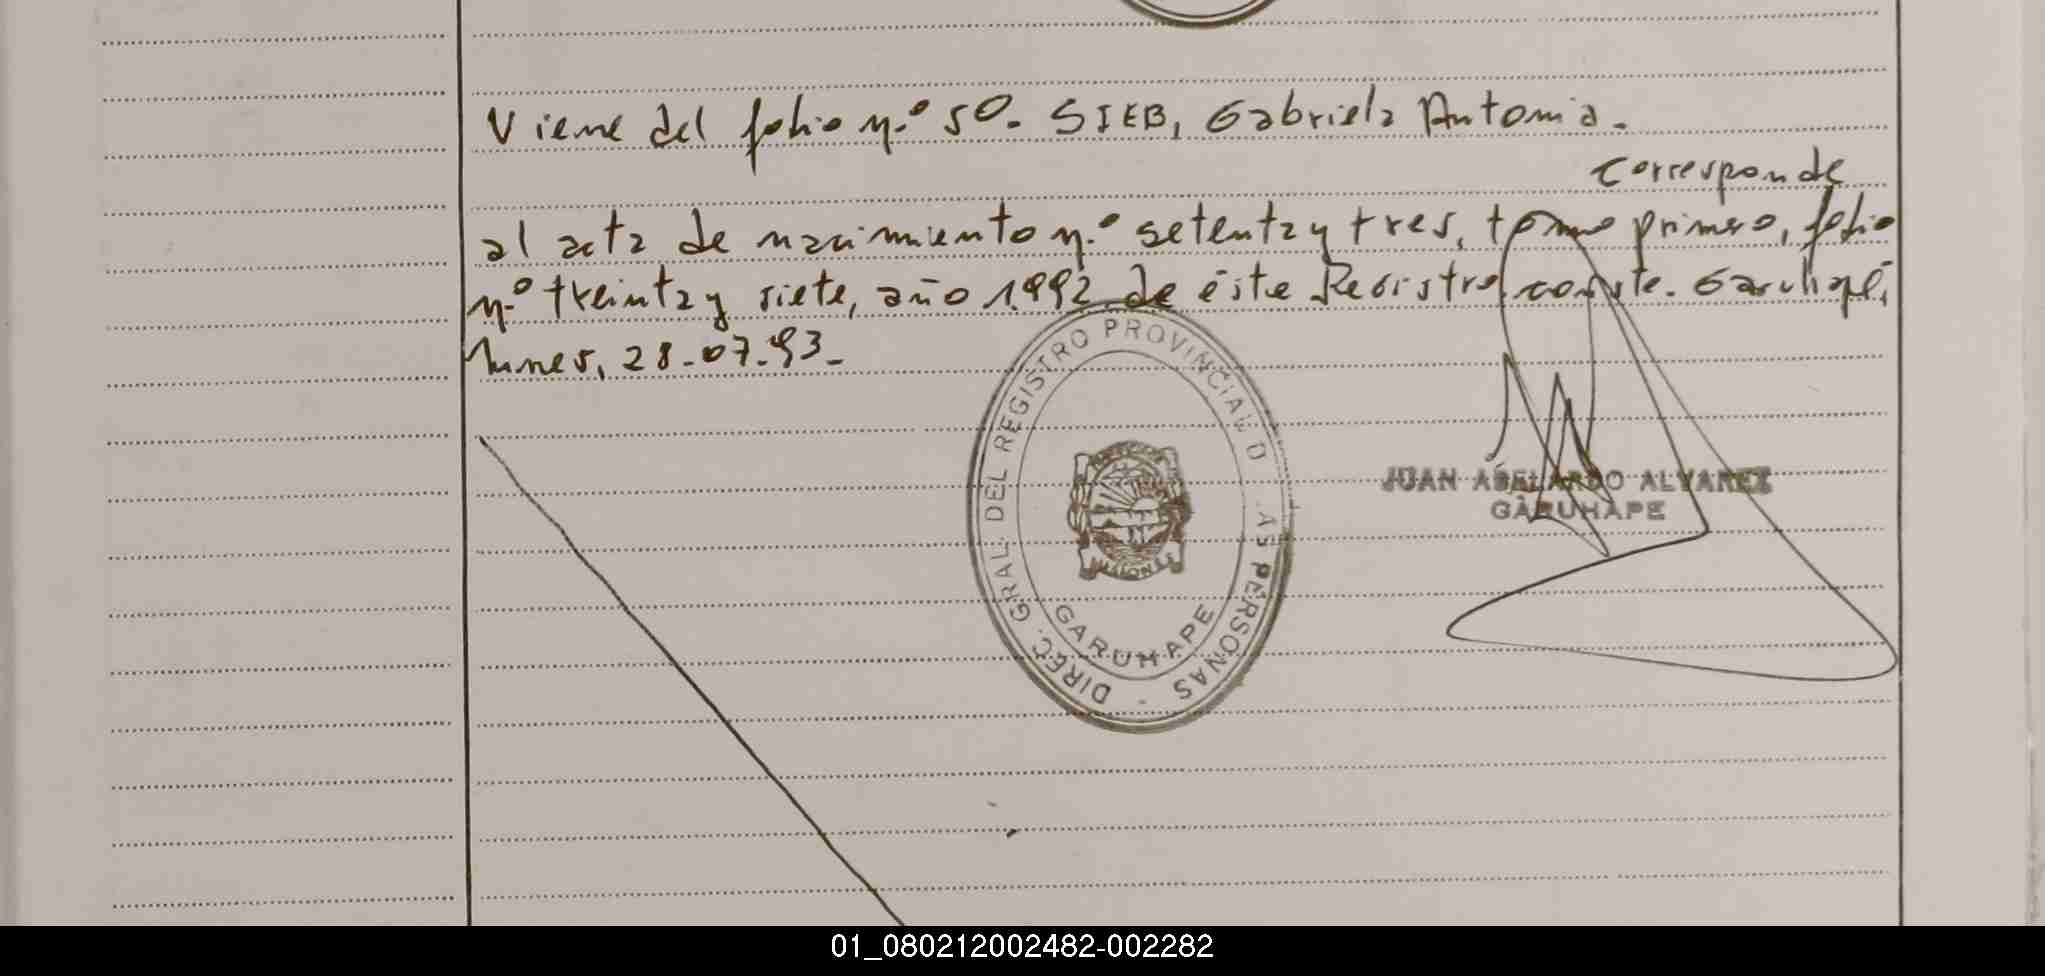 Viene del folio n.º 50. SIEB, Gabriela Antonia.
Corresponde
al acta de nacimiento n.º setenta y tres, tomo primero, folio
n.º treinta y siete, año 1.992, de éste Registro, conste. Garuhapé,
Misiones, 28-07-93-
DIREC. GRAL. DEL REGISTRO PROVINCIAL D AS PERSONAS -
GARUHAPE
JUAN ABELARDO ALVAREZ
GARUHAPE
01_080212002482-002282